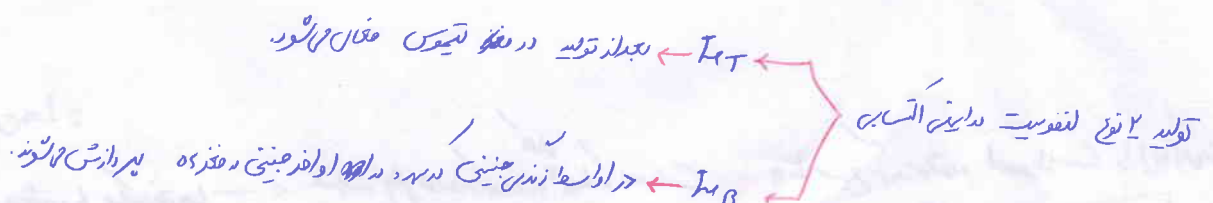 تولید ۲ نوع لنفوسیت در ایمنی اکتسابی
Lm T ← بعد از تولید در تیموس فعال می‌شود.
Lm B ← در اواسط زندگی جنینی در کبد و در اواخر جنینی در مغز پردازش می‌شوند.